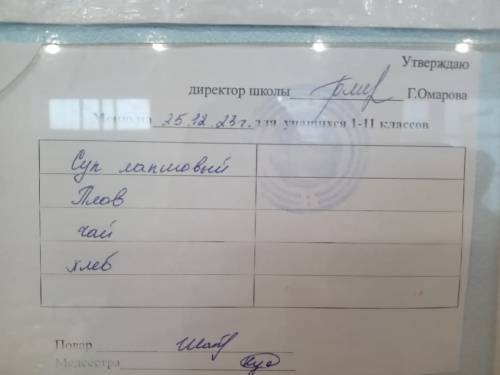 Утверждаю
директор школы Г.Омарова
Меню на 25.12.23г. для учащихся 1-11 классов
Суп лапшовый
Плов
чай
хлеб
Повар
Медсестра